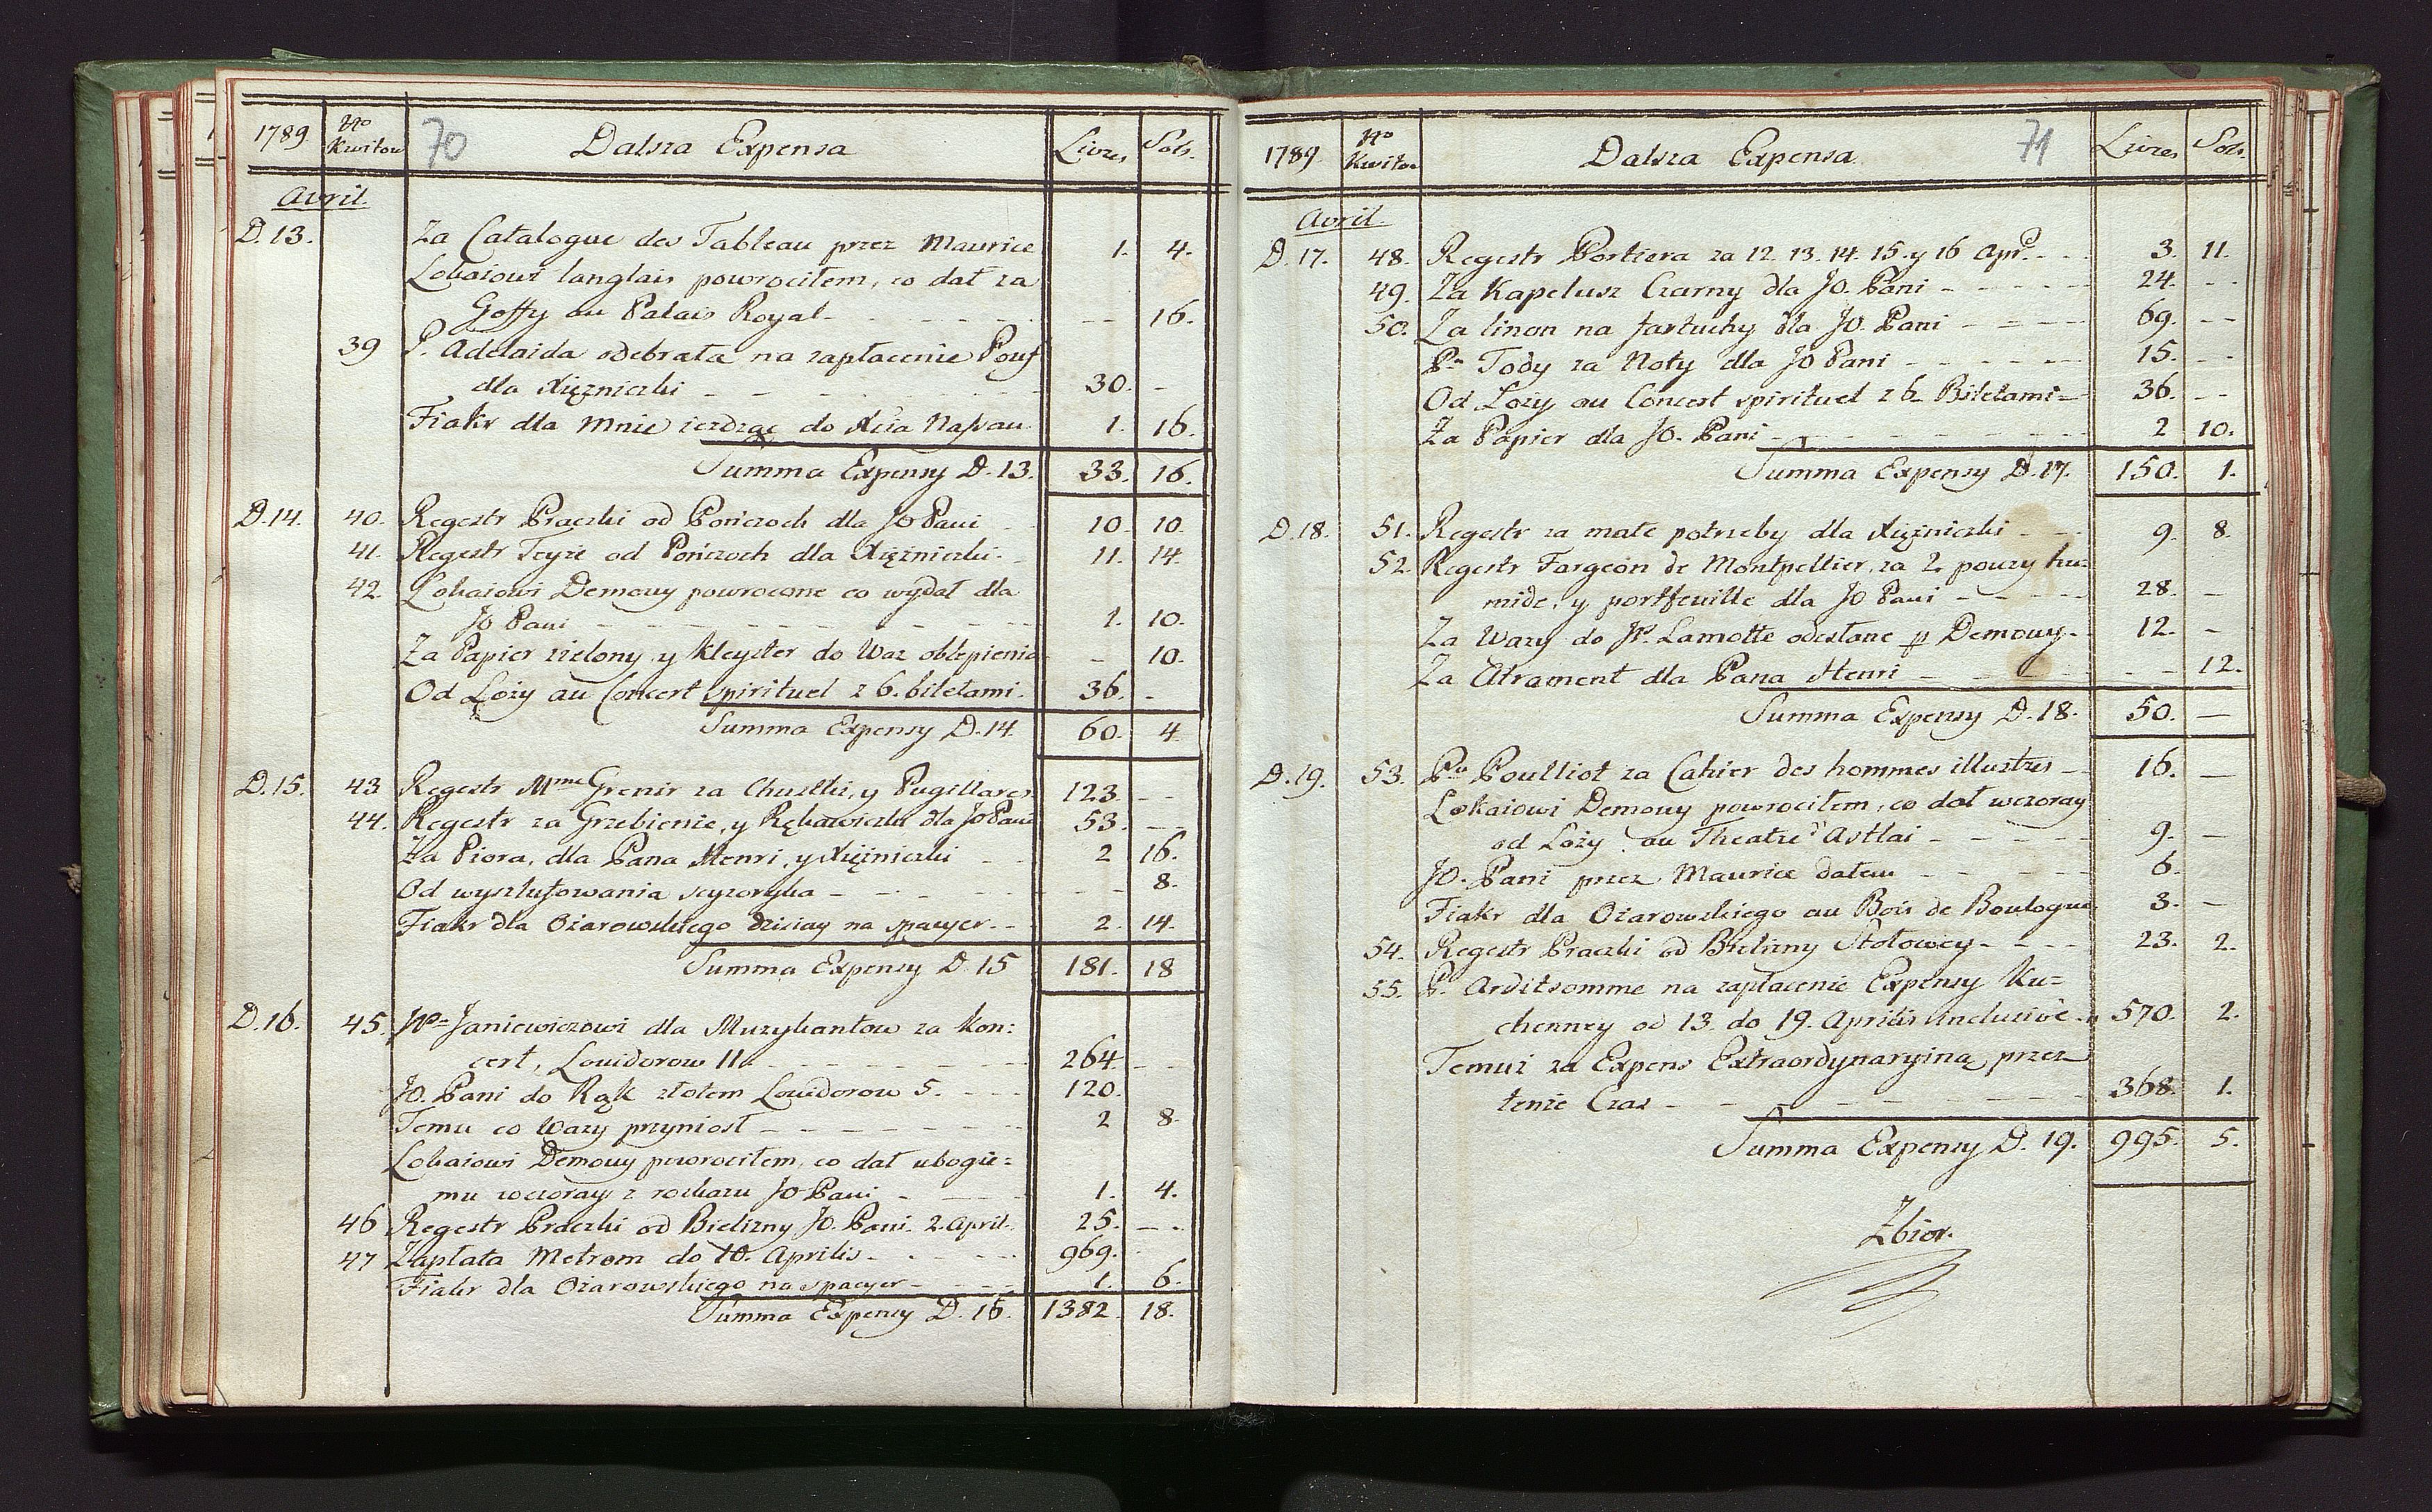 1789 No Kwitow 70 Dalsza Expensa Livres Sols.
Avril.
D. 13. Za Catalogue des Tableau przez Maurice 1. 4.
Lokaiowi langlais powrociłem, co dał za
Goffy au Palais Royal - - - - - - - 16.
39 P. Adelaida odebrała na zapłacenie Pouf
dla Xiężniczki - - - - - - 30. -
Fiakr dla Mnie ieżdząc do Xcia Nassau 1. 16.
Summa Expensy D. 13. 33. 16.
D. 14. 40. Regestr Praczki od Pończoch dla JO Pani - 10. 10.
41. Regestr Teyże od Pończoch dla Xiężniczki. - 11. 14.
42. Lokaiowi Demouy powrocone co wydał dla
JO Pani - - - - - - - - 1. 10.
Za Papier zielony, y Kleyster do Waz oblepienia - - 10.
Od Loży au Concert spirituel z 6. biletami. 36. -
Summa Expensy D. 14. 60. 4
D. 15. 43 Regestr Mme Grenir za Chustki, y Pugillares 123. - -
44. Regestr za Grzebienie, y Rękawiczki dla JO Pani 53. - -
Za Piora, dla Pana Henri, y Xiężniczki - - 2 16.
Od wyszlufowania scyzoryka - - - - - - 8.
Fiakr dla Ożarowskiego dzisiay na spacyer - - 2. 14.
Summa Expensy D. 15 181. 18
D. 16. 45. JPo Janiewiczowi dla Muzykantow za kon:
cert, Louidorow 11. - - - - - - 264. - -
JO. Pani do Rąk złotem Louidorow 5. - - - 120.
Temu co Wazy przyniosł - - - - - - - 2 8.
Lokaiowi Demouy powrociłem, co dał ubogie:
mu wczoray z rozkazu JO Pani - - - - 1. 4.
46 Regestr Praczki od Bielizny JO. Pani. 2. April. 25. - -
47 Zapłata Metrom do 10. Aprilis - - - - - 969. -
Fiakr dla Ożarowskiego na spacyer - - - - 1. 6.
Summa Expensy D. 16. 1382. 18.
1789. No Kwitow Dalsza Expensa 71 Livres Sols.
Avril.
D. 17. 48. Regestr Portiera za 12. 13. 14. 15. y 16 Apr. - - - 3. 11.
49. Za Kapelusz Czarny dla JO. Pani - - - - - 24. - -
50. Za linon na fartuchy dla JO. Pani - - - - 69. - -
Pu Tody za Noty dla JO Pani - - - - - - 15. - -
Od Loży au Concert spirituel z 6. Biletami - 36. - -
Za Papier dla JO. Pani - - - - - - - - 2 10.
Summa Expensy D. 17. 150. 1.
D. 18. 51. Regestr za małe potrzeby dla Xiężniczki - - - 9. 8.
52. Regestr Fargeon de Montpellier, za 2. pouzy hu=
mide, y portfeuille dla JO Pani - - - - - 28. -
Za Wazy do JP. Lamotte odesłane p Demouy - 12. -
Za Atrament dla Pana Henri - - - - - - - 12.
Summa Expensy D. 18. 50. -
D. 19. 53. Pu Poulliot za Cahier des hommes illustres - 16. -
Lokaiowi Demouy powrociłem, co dał wczoray
od Loży au Theatre d'Astlai - - - - - 9. -
JO. Pani przez Maurice dałem - - - - - 6.
Fiakr dla Ożarowskiego au Bois de Boulogne 3. -
54. Regestr Praczki od Bielizny Stołowey - - - - 23. 2.
55. Pu Arditsomme na zapłacenie Expensy Ku=
chenney od 13. do 19. Aprilis inclusivè - 570. 2.
Temuż za Expens Extraordynaryiną przez
tenże Czas - - - - - - - - 368. 1.
Summa Expensy D. 19. 995. 5.
Zbior.